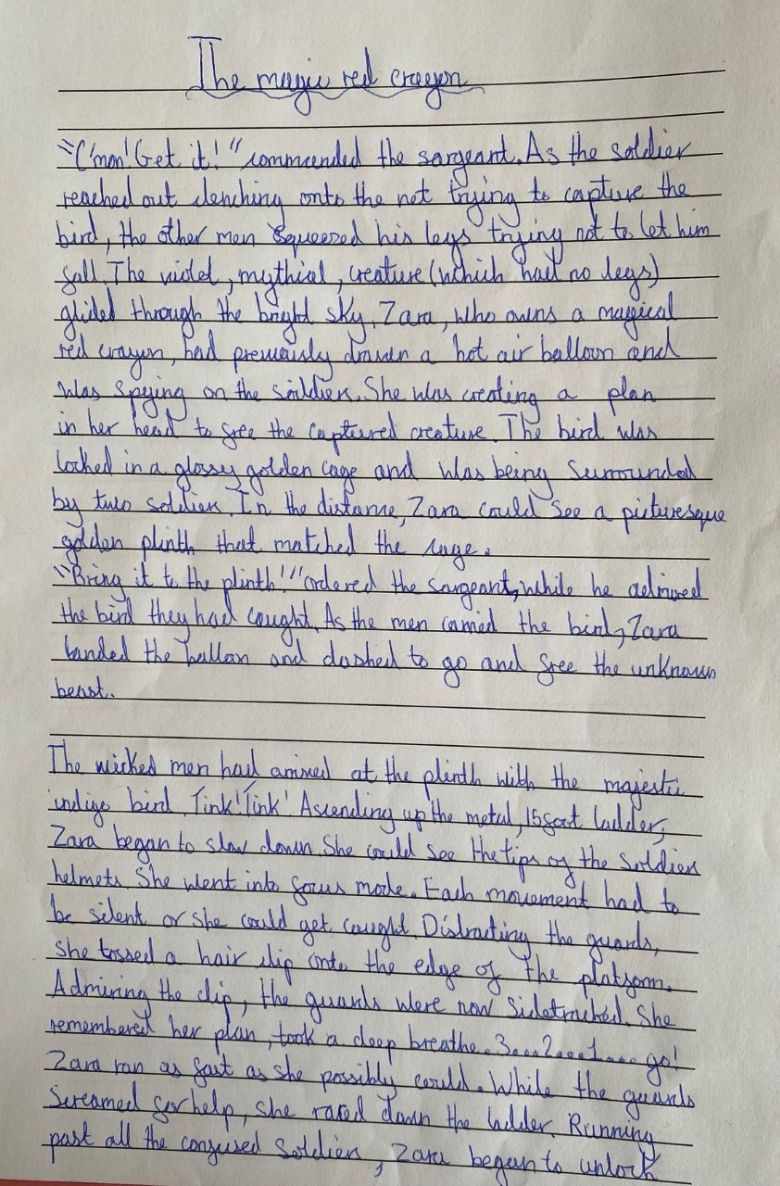 The magic red crayon
"C'mon! Get it!" commanded the sargeant. As the soldier
reached out clenching onto the net trying to capture the
bird, the other men squeezed his legs trying not to let him
fall. The violet, mythial, creature (which had no legs)
glided through the bright sky. Zara, who owns a magical
red crayon, had previously drawn a hot air balloon and
was spying on the soildiers. She was creating a plan
in her head to free the captured creature. The bird was
locked in a glossy golden cage and was being surrounded
by two soldiers. In the distance, Zara could see a picturesque
golden plinth that matched the cage.
"Bring it to the plinth!" ordered the sargeant, while he admired
the bird they had caught. As the men carried the bird, Zara
landed the balloon and dashed to go and free the unknown
beast.
The wicked men had arrived at the plinth with the majestic
indigo bird. Tink! Tink! Ascending up the metal, 15 foot ladder,
Zara began to slow down. She could see the tips of the soldiers
helmets. She went into focus mode. Each movement had to
be silent or she could get caught. Distracting the guards,
she tossed a hair clip onto the edge of the platform.
Admiring the clip, the guards were now sidetracked. She
remembered her plan, took a deep breathe. 3...2...1.... go!
Zara ran as fast as she possibly could. While the guards
screamed for help, she raced down the ladder. Running
past all the confused soldiers, Zara began to unlock